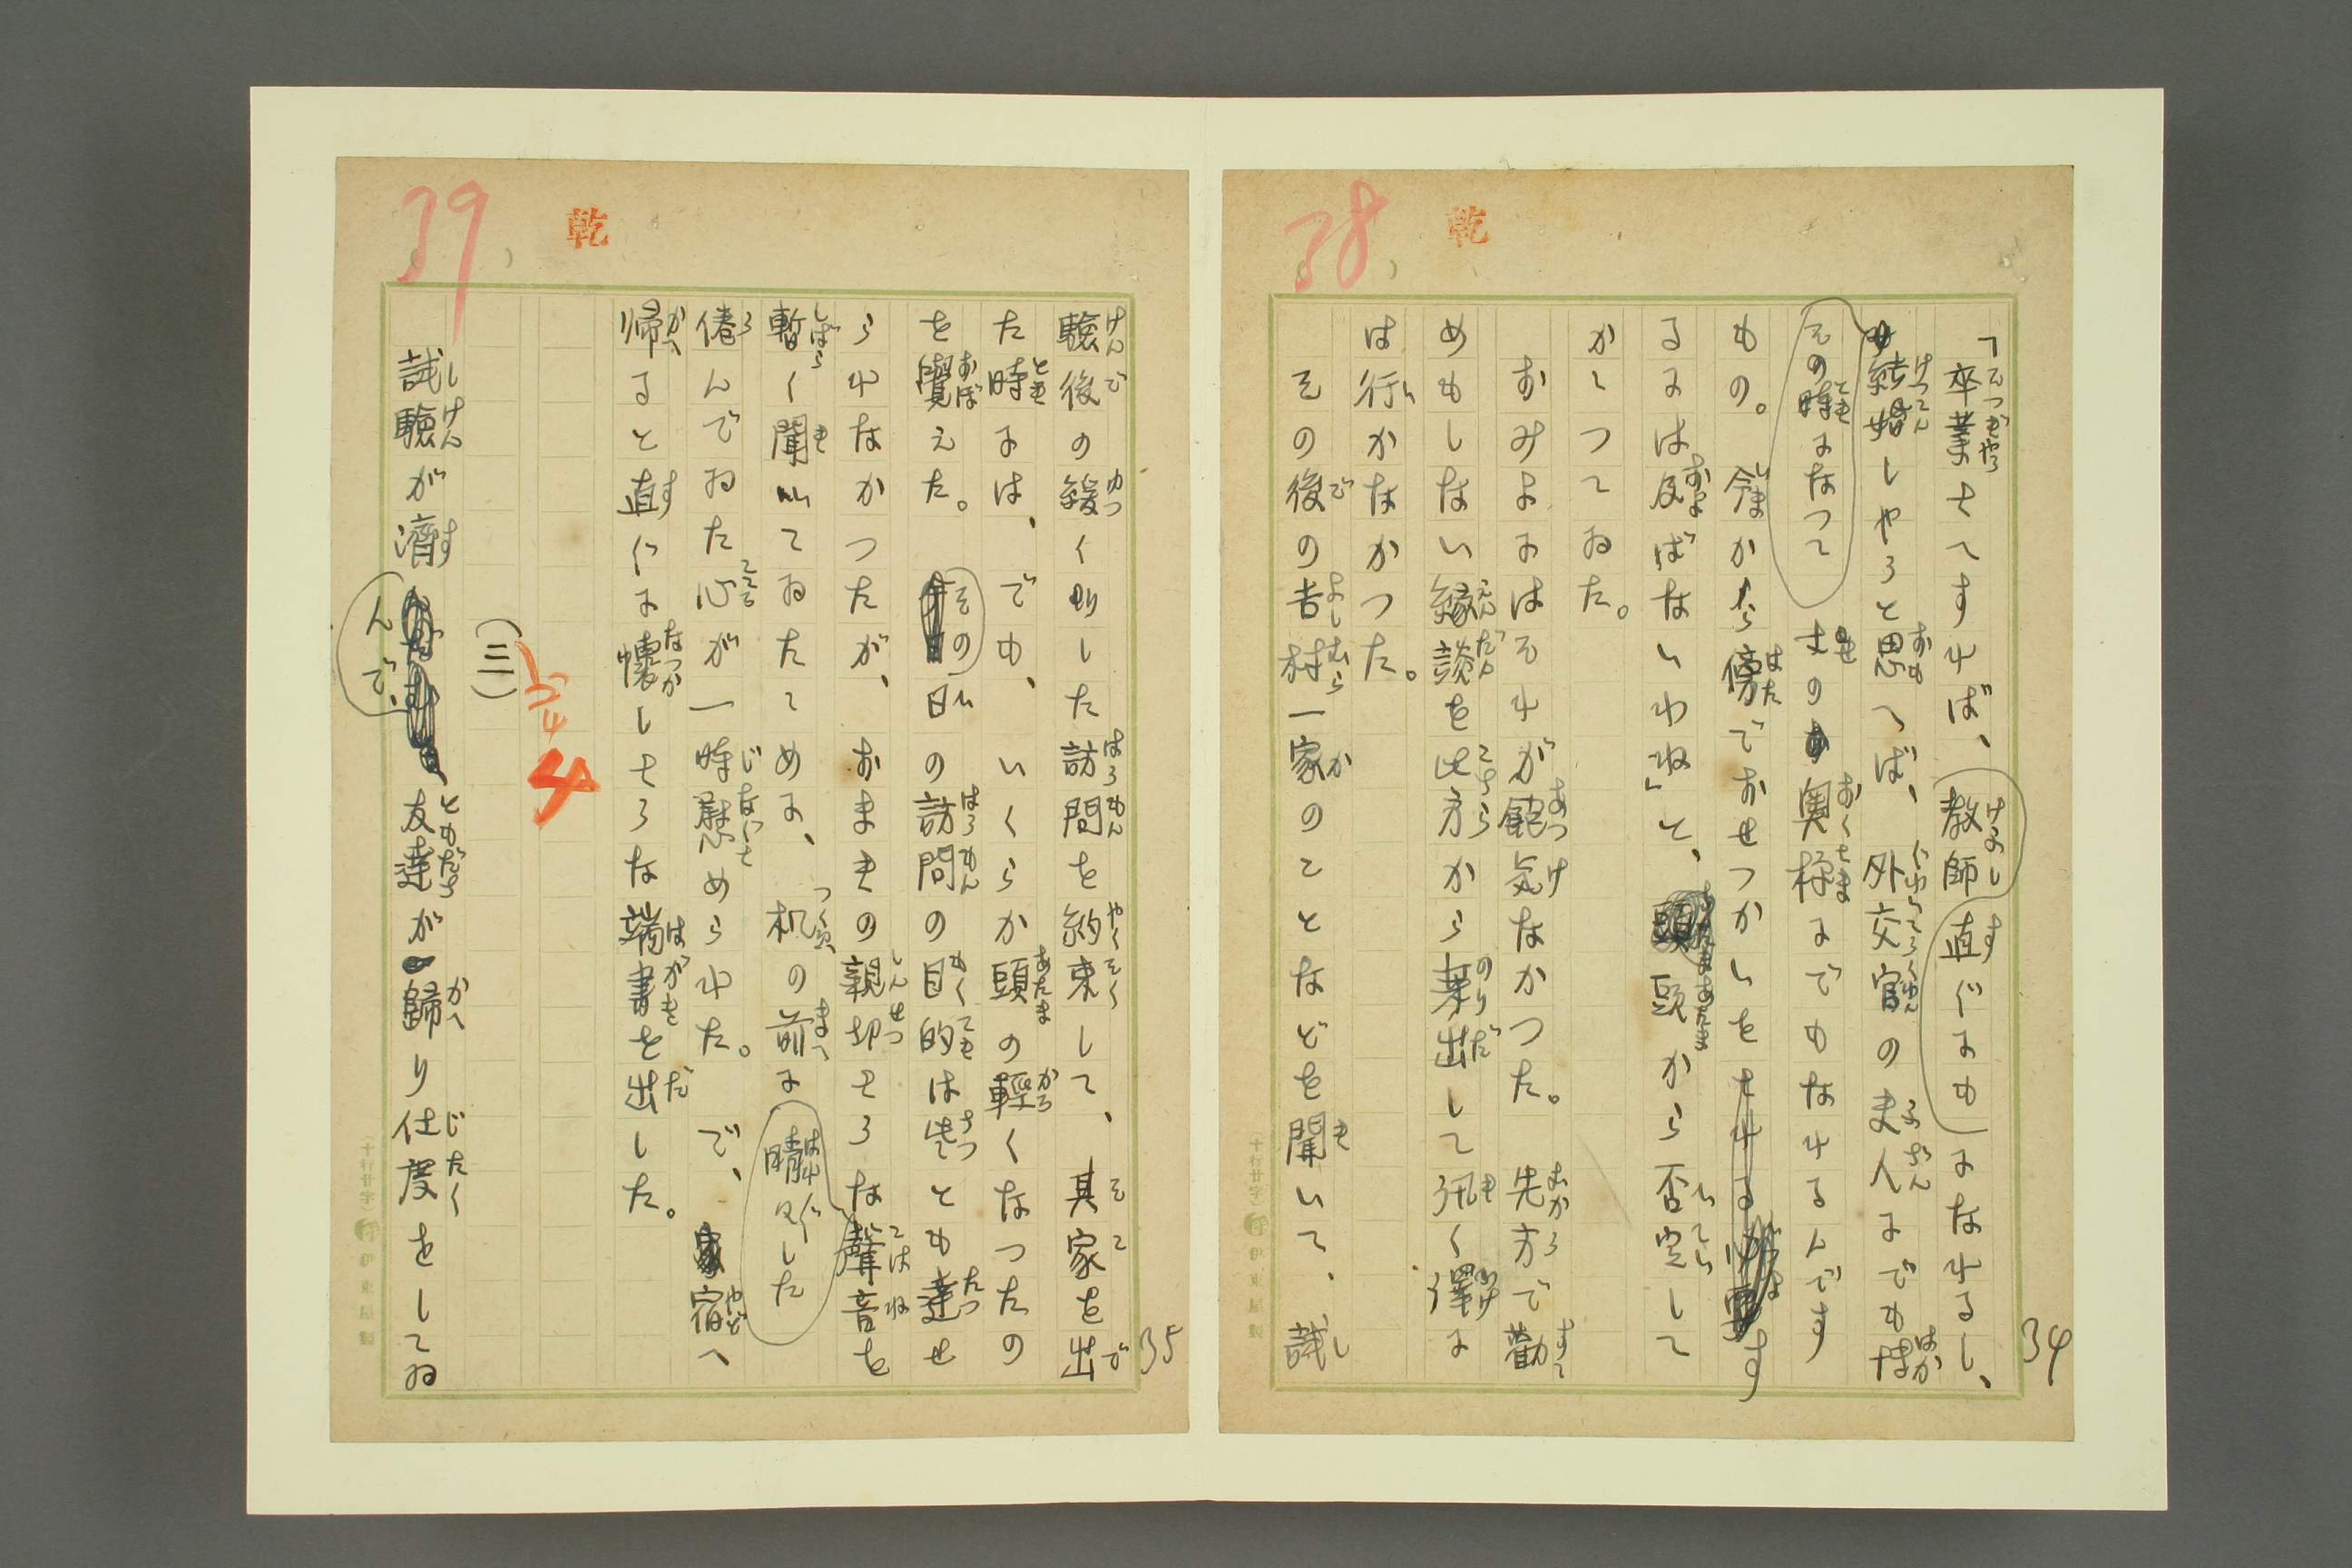 34
38
乾
「卒業さへすれば、教師直ぐにもになれるし、
結婚しやうと思へば、外交官の夫人にでも博
その時になつて
もの。今から傍でおせつかいをす
るには及ばないわね」と、頭から否定して
かゝつてゐた。
おみよにはそれが飽気なかつた。先方で勸
めもしない縁談を此方から乗出して訊く譯に
は行かなかつた。
その後の吉村一家のことなどを聞いて、試
35
39
乾
驗後の緩くりした訪問を約束して、其家を出
た時には、でも、いくらか頭の輕くなつたの
を覺えた。その日の訪問の目的は些とも達せ
られなかつたが、おまきの親切さうな聲音を
暫く聞いてゐたゝめに、机の前に
倦んでゐた心が一時慰められた。で、宿へ
帰ると直ぐに懷しさうな端書を出した。
4
(三)
試驗が濟んで、友達が歸り仕度をしてゐ